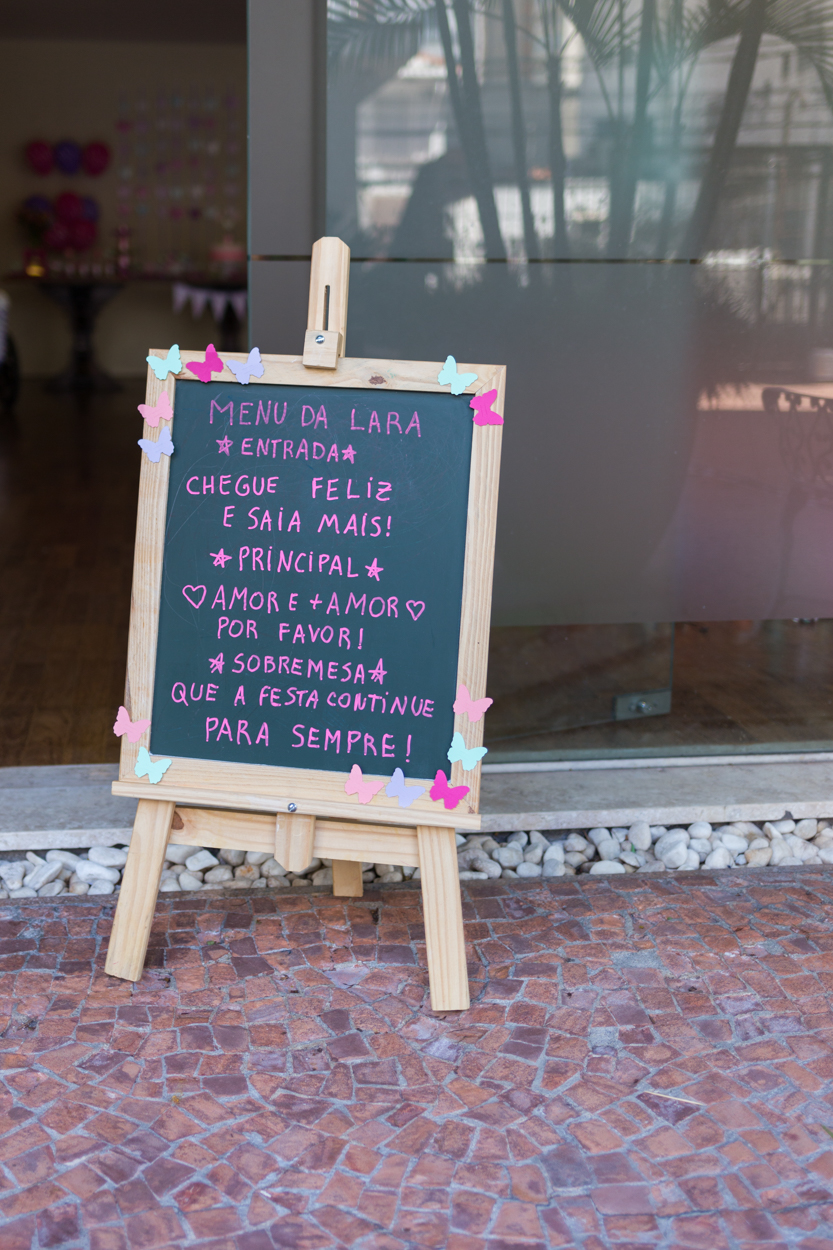 MENU DA LARA
☆ ENTRADA ☆
CHEGUE FELIZ
E SAIA MAIS!
☆ PRINCIPAL ☆
♡ AMOR E + AMOR ♡
POR FAVOR!
☆ SOBREMESA ☆
QUE A FESTA CONTINUE
PARA SEMPRE!